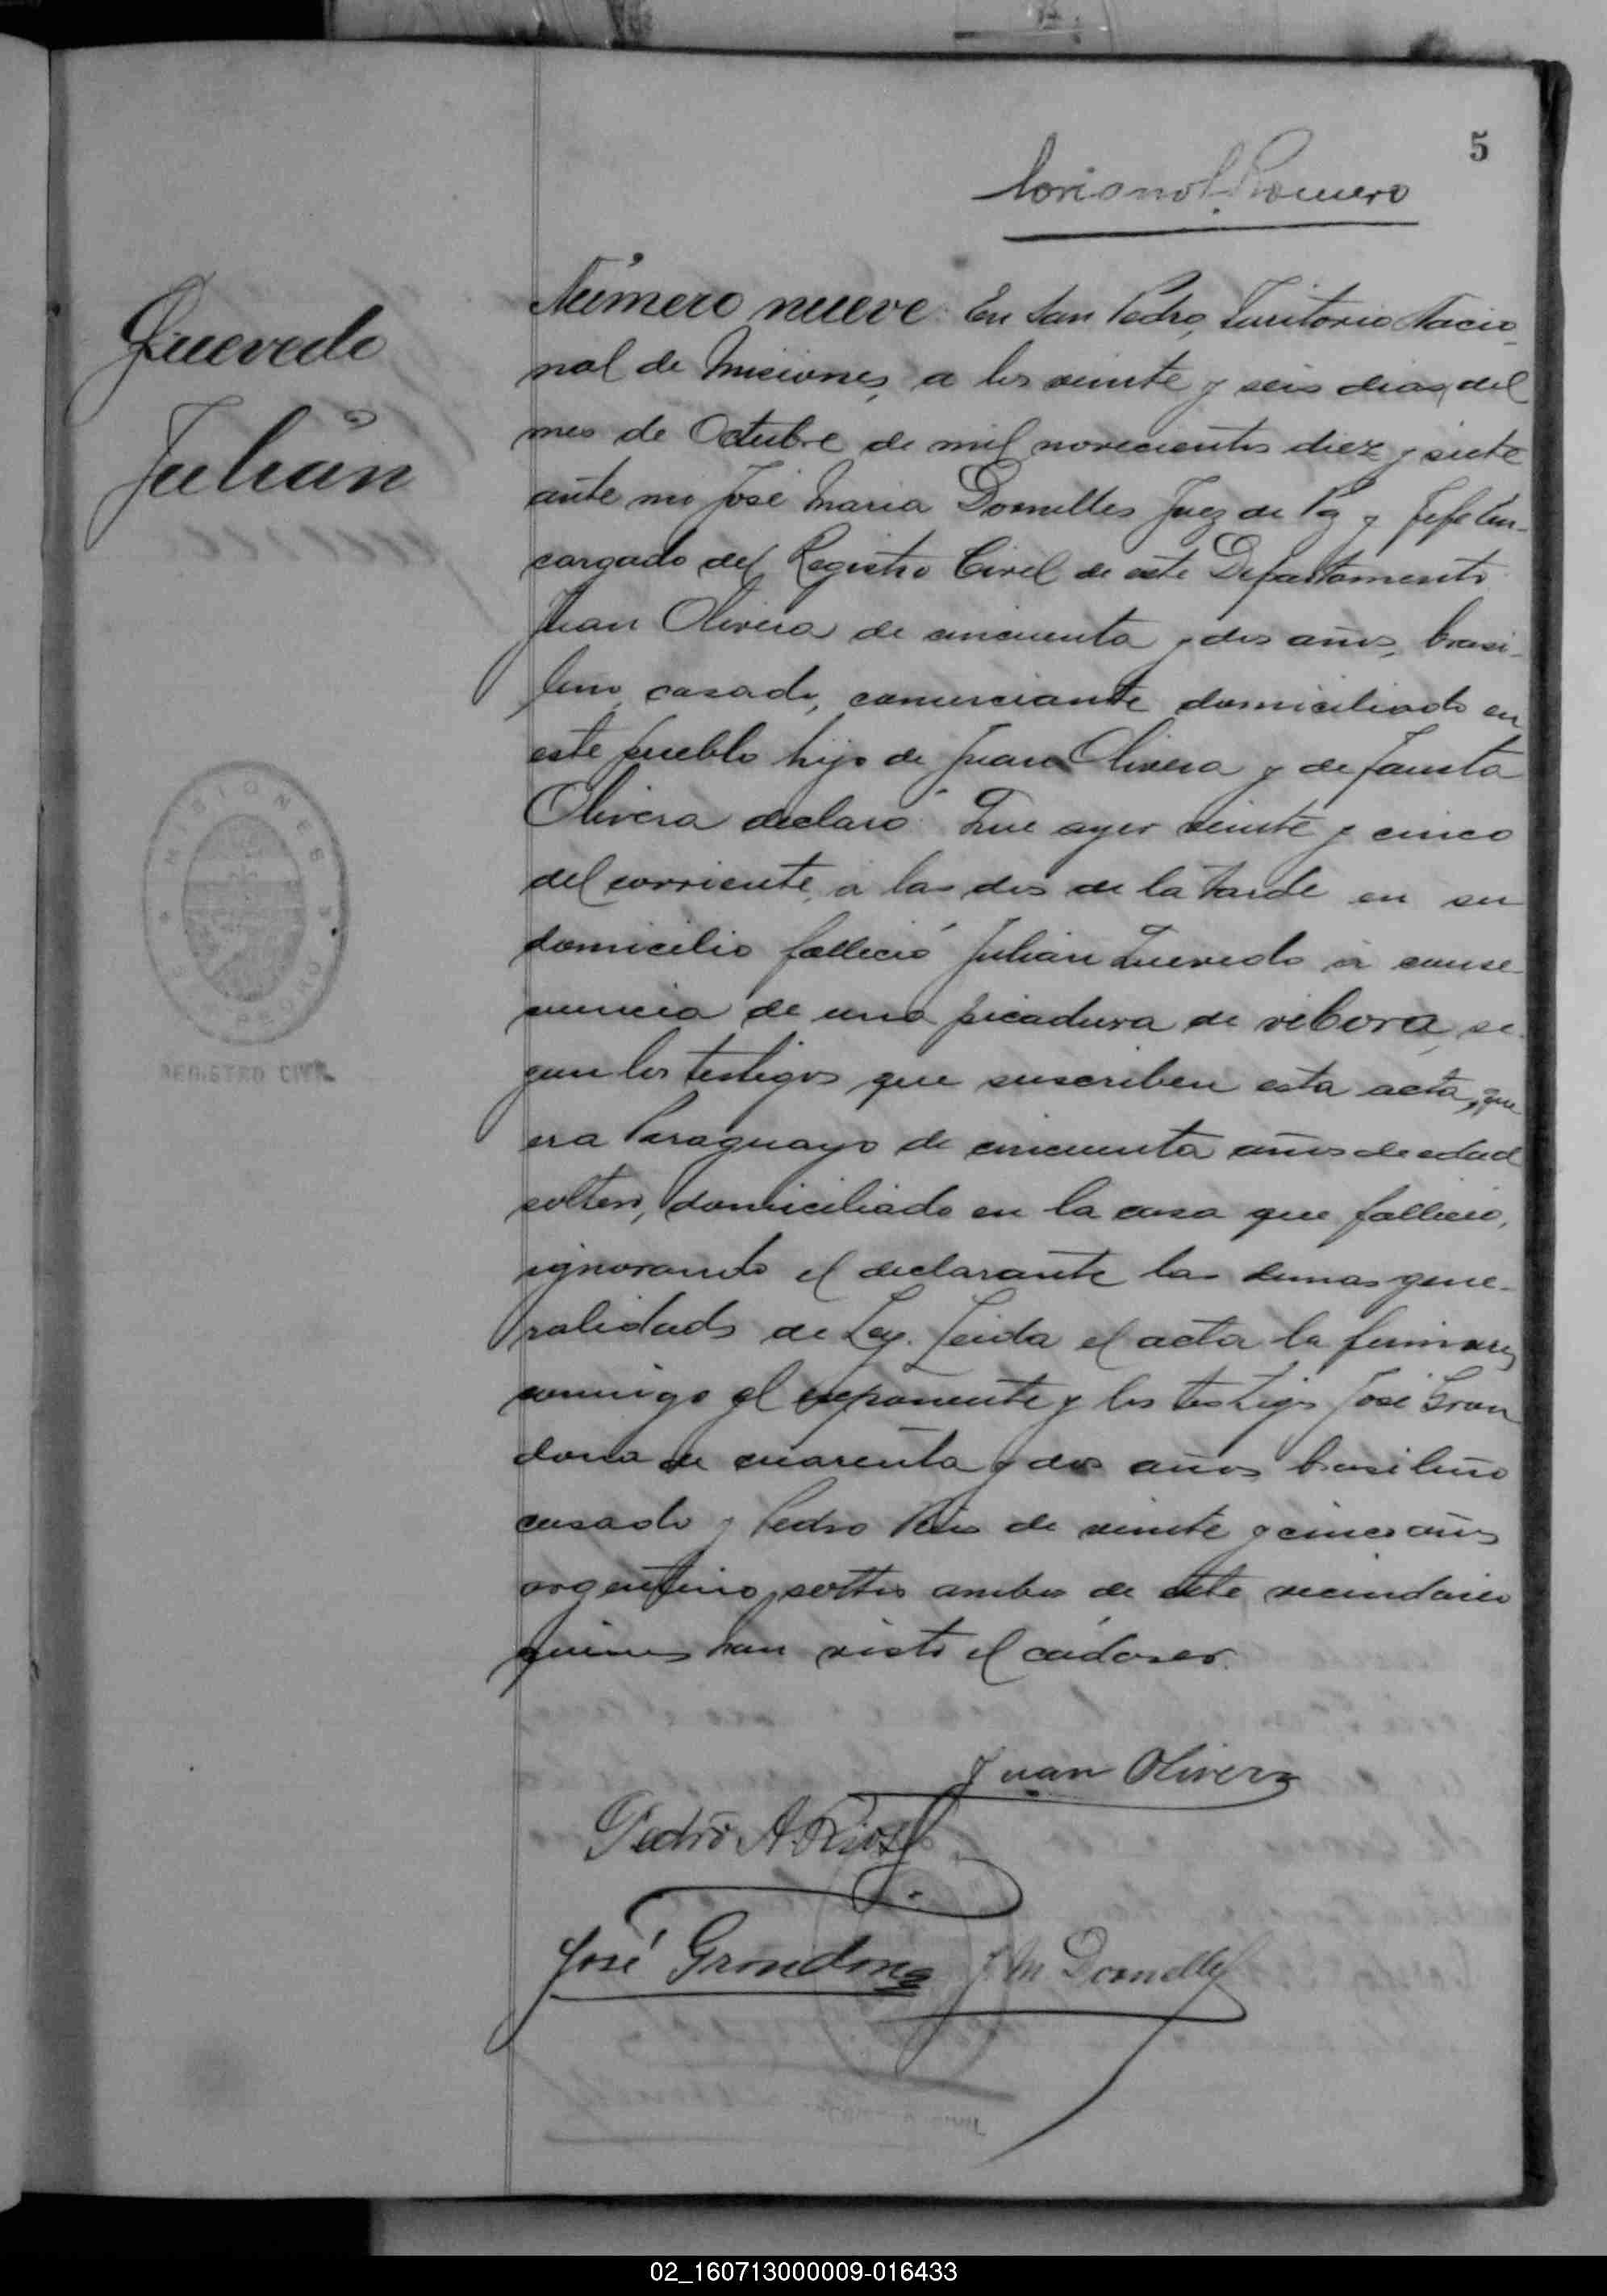 5
Romero
Quevedo
Julián
MISIONES
SAN PEDRO
REGISTRO CIVIL
Número nueve. En San Pedro, Territorio Nacio-
nal de Misiones, a los veinte y seis dias del
mes de Octubre de mil novecientos diez y siete
ante mi José Maria Dornelles Juez de Paz y Jefe En-
cargado del Registro Civil de este Departamento.
Juan Olivera de cincuenta y dos años, brasi-
lero, casado, comerciante domiciliado en
este pueblo hijo de Juan Olivera y de Fausta
Olivera declaró: Que ayer veinte y cinco
del corriente, á las dos de la tarde en su
domicilio falleció Julián Quevedo á conse-
cuencia de una picadura de vibora, se-
gun los testigos que suscriben esta acta, que
era Paraguayo de cincuenta años de edad
soltero, domiciliado en la casa que falleció,
ignorando el declarante las demas gene-
ralidads de Ley. Leida el acta la firmaron
conmigo el exponente y los testigos José Gron
dona de cuarenta y dos años brasileño
casado y Pedro Rios de veinte y cinco años
argentino, soltero ambos de este vecindario
quienes han visto el cadaver.
Juan Olivera
Pedro A. Rios
José Grondona J. M. Dornelles
02_160713000009-016433